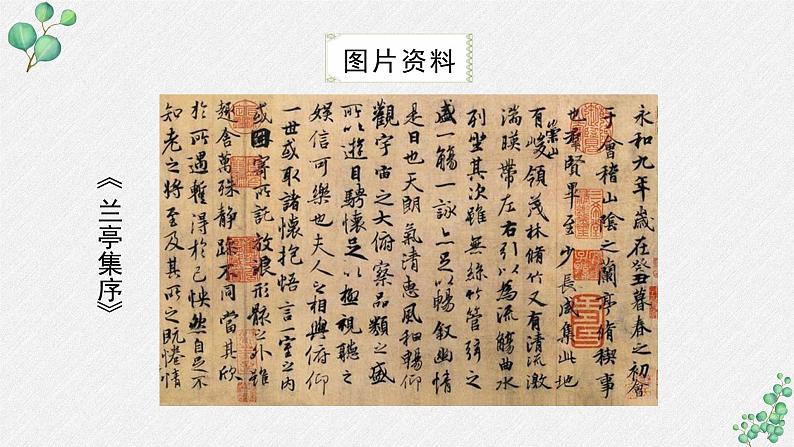 图片资料
《兰亭集序》
永和九年歲在癸丑暮春之初會
于會稽山陰之蘭亭脩稧事
也羣賢畢至少長咸集此地
有崇山峻領茂林脩竹又有清流激
湍暎帶左右引以為流觴曲水
列坐其次雖無絲竹管弦之
盛一觴一詠亦足以暢敘幽情
是日也天朗氣清惠風和暢仰
觀宇宙之大俯察品類之盛
所以遊目騁懷足以極視聽之
娛信可樂也夫人之相與俯仰
一世或取諸懷抱悟言一室之內
或因寄所託放浪形骸之外雖
趣舍萬殊靜躁不同當其欣
於所遇蹔得於己怏然自足不
知老之將至及其所之既惓情